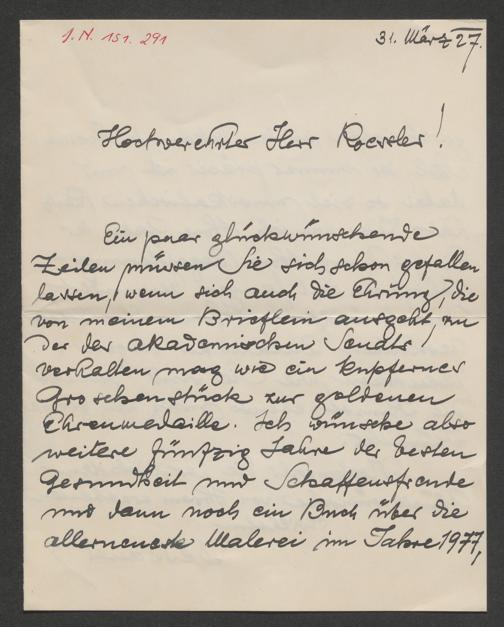 J.N. 151.291
31. März 27.
Hochverehrter Herr Roessler!
Ein paar glückwünschende
Zeilen müssen Sie sich schon gefallen
lassen, wenn sich auch die Ehrung, die
von meinem Brieflein ausgeht, zu
der des akademischen Senats
verhalten mag wie ein kupfernes
Groschenstück zur goldenen
Ehrenmedaille. Ich wünsche also
weitere fünfzig Jahre der besten
Gesundheit und Schaffensfreude
und dann noch ein Buch über die
allerneueste Malerei im Jahre 1977,